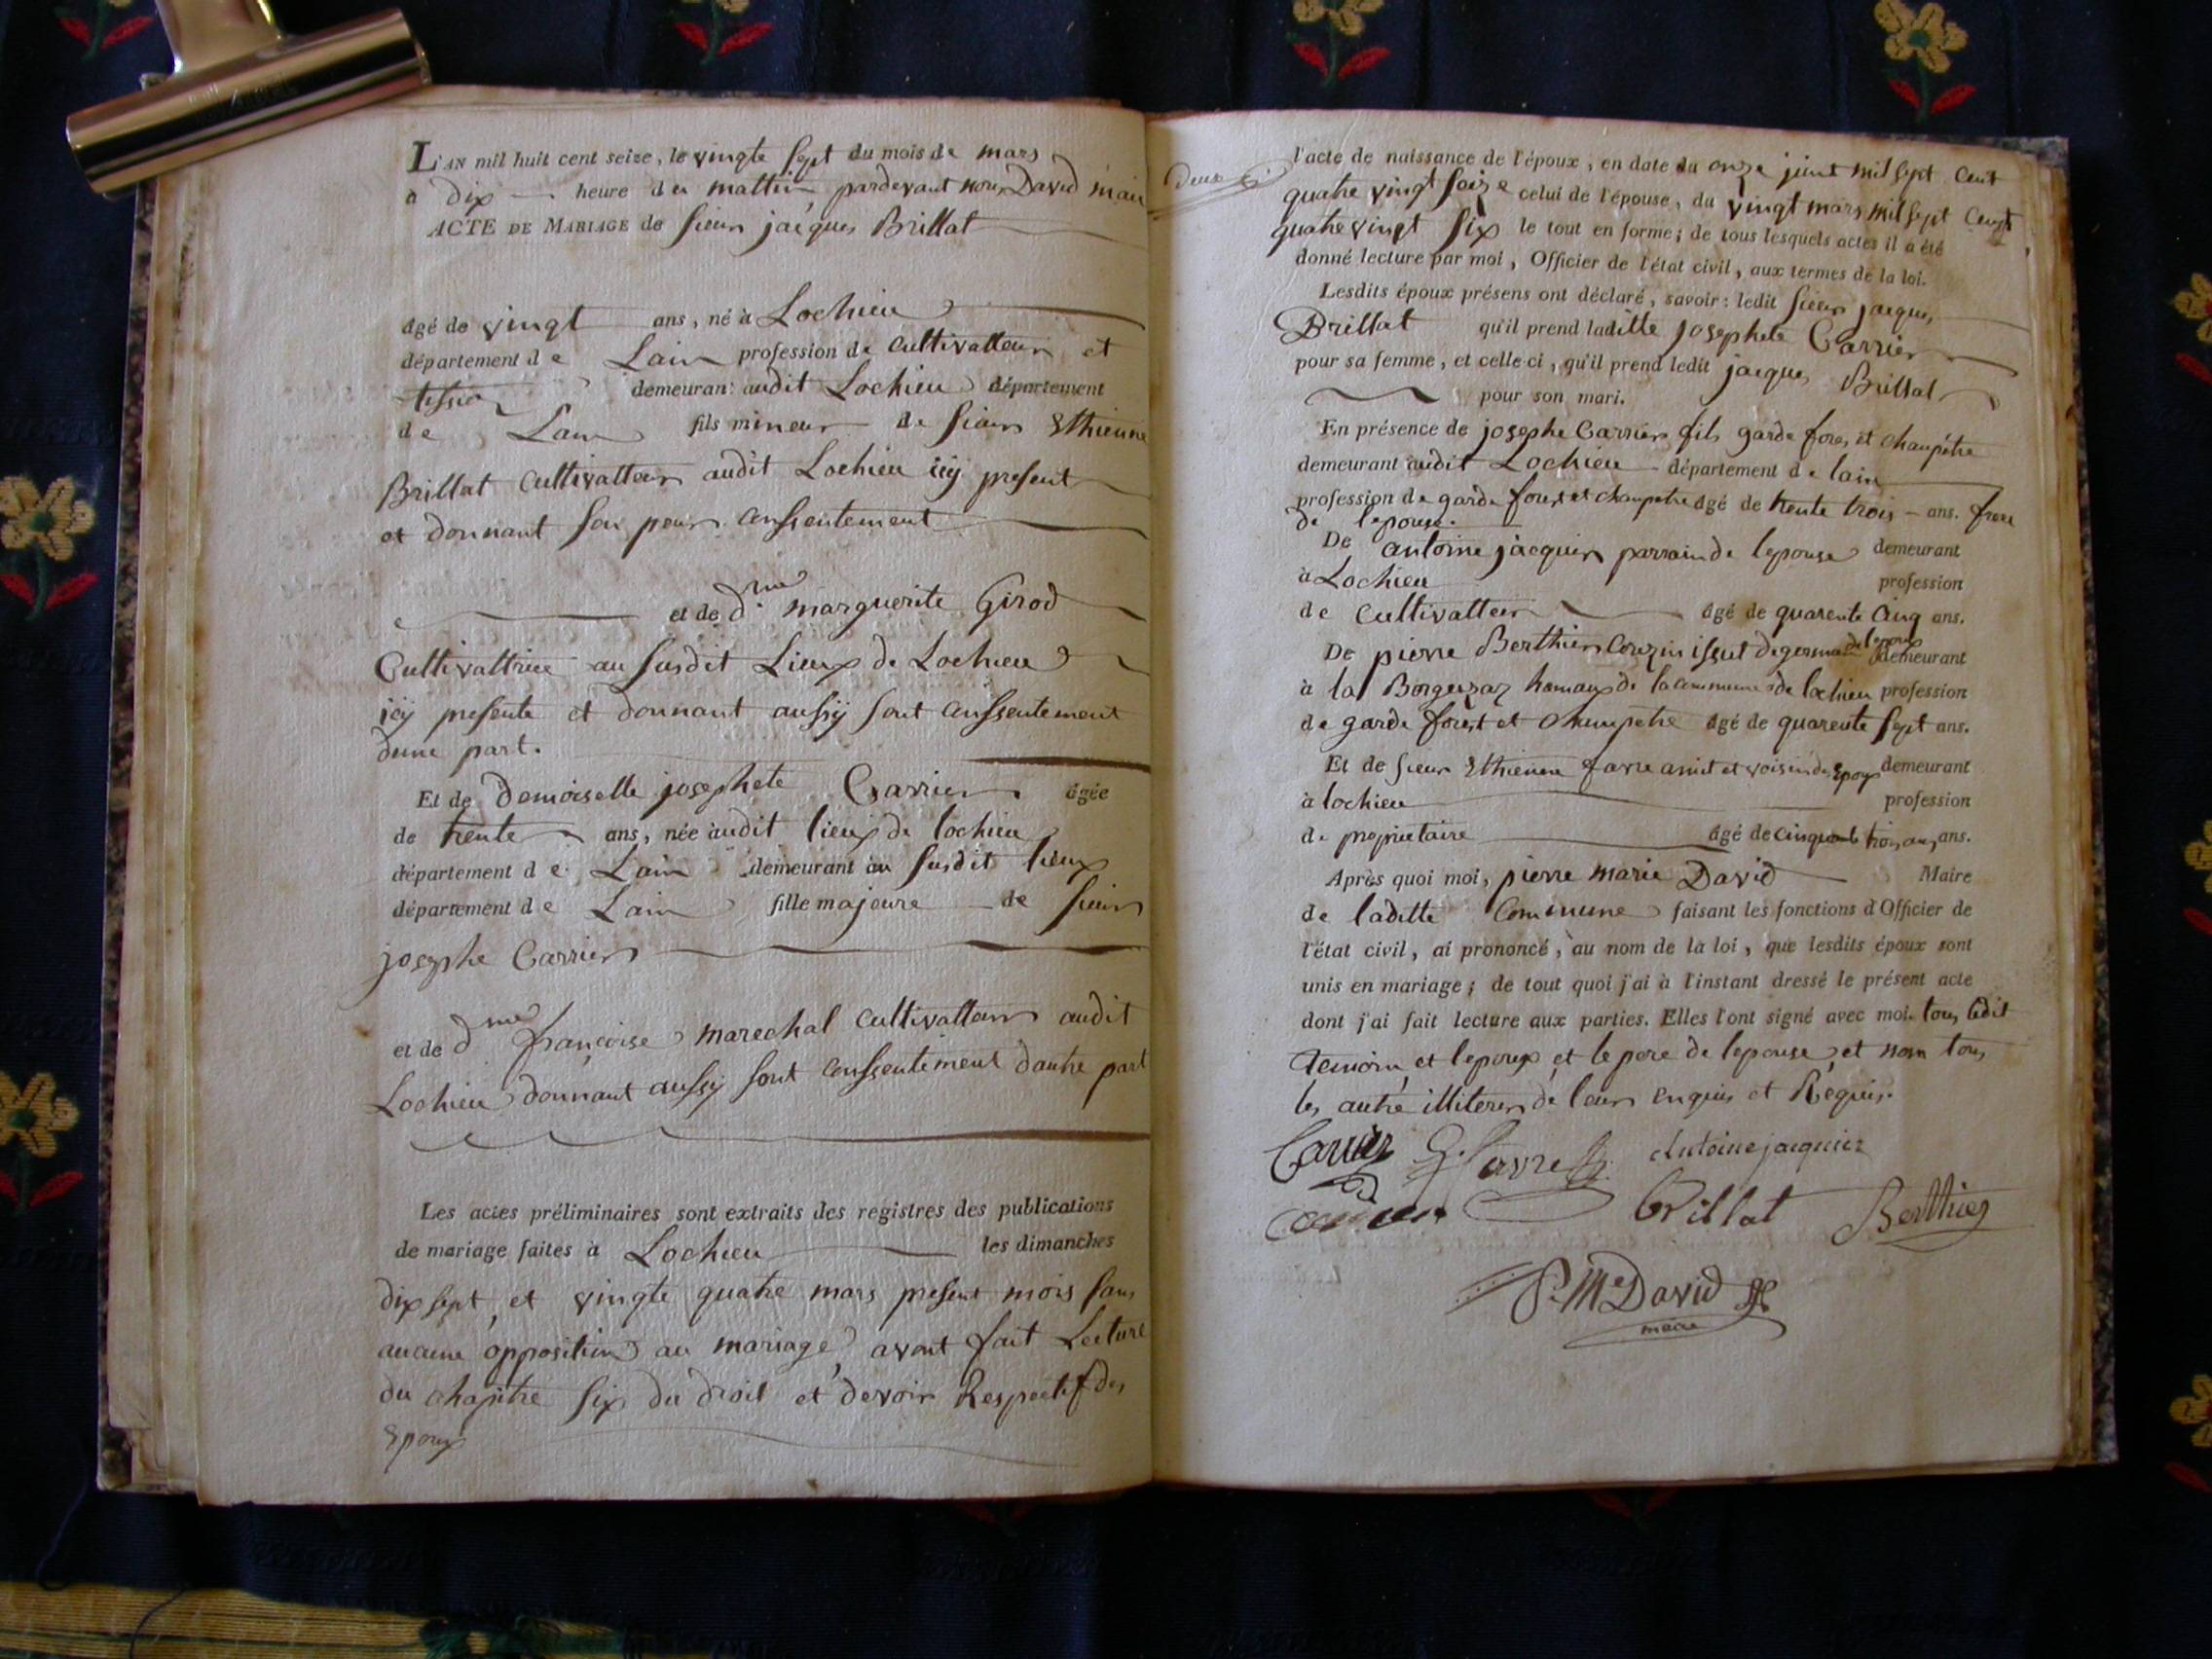 L'AN mil huit cent seize, le vingte sept du mois de mars
a dix heure du mattin pardevant nous David maire
ACTE DE MARIAGE de sieur jacques Brillat
âgé de vingt ans, né à Lochieu
département de Lain profession de cultivatteur et
tissier demeurant audit Lochieu département
de Lain fils mineur de sieur Ethienne
Brillat cultivatteur audit Lochieu icy present
et donnant son peur consentement
et de dme marguerite Girod
Cultivattrice au susdit Lieux de Lochieu
icy presente et donnant aussy sont conssentement
dune part.
Et de demoiselle josephete Carrier âgée
de trente ans, née audit lieux de lochieu
département de Lain demeurant au susdit lieux
département de Lain fille majeure de sieur
josephe Carrier
et de dme françoise marechal cultivatteur audit
Lochieu donnant aussy sont conssentement dautre part
Les actes préliminaires sont extraits des registres des publications
de mariage faites à Lochieu les dimanches
dix sept et vingte quatre mars present mois sans
aucune opposition au mariage avont fait Lecture
du chapitre six du droit et devoir Respectif des
Epoux
deux
l'acte de naissance de l'époux, en date du onze juint mil sept cent
quatre vingt seize celui de l'épouse, du vingt mars mil sept cent
quatre vingt six le tout en forme; de tous lesquels actes il a été
donné lecture par moi, Officier de l'état civil, aux termes de la loi.
Lesdits époux présens ont déclaré, savoir: ledit sieur jacques
Brillat qu'il prend laditte josephete Carrier
pour sa femme, et celle-ci, qu'il prend ledit jacques Brillat
pour son mari.
En présence de josephe Carrier fils garde fores et champétre
demeurant audit Lochieu département de lain
profession de garde forest et champetre âgé de trente trois ans. frere
de lepouse.
De antoine jacquier parrain de lepouse demeurant
à Lochieu profession
de cultivatteur âgé de quarente cinq ans.
De pierre Berthier couzin issut de germain de lepoux demeurant
à la Borgeszaz hamaux de la commune de lochieu profession
de garde forest et champetre âgé de quarente sept ans.
Et de sieur Ethienne favre amit et voisin des Epoux demeurant
à lochieu profession
de proprietaire âgé de cinquante trois ans, ans.
Après quoi moi, pierre marie David Maire
de laditte Commune faisant les fonctions d'Officier de
l'état civil, ai prononcé, au nom de la loi, que lesdits époux sont
unis en mariage; de tout quoi j'ai à l'instant dressé le présent acte
dont j'ai fait lecture aux parties. Elles l'ont signé avec moi. tous ledit
temoin et lepoux et le pere de lepouse et nom tous
les autre illiterer de leur enquis et Réquis.
Carrier E. favre antoine jacquier
Brillat Berthier
P. Me David
maire